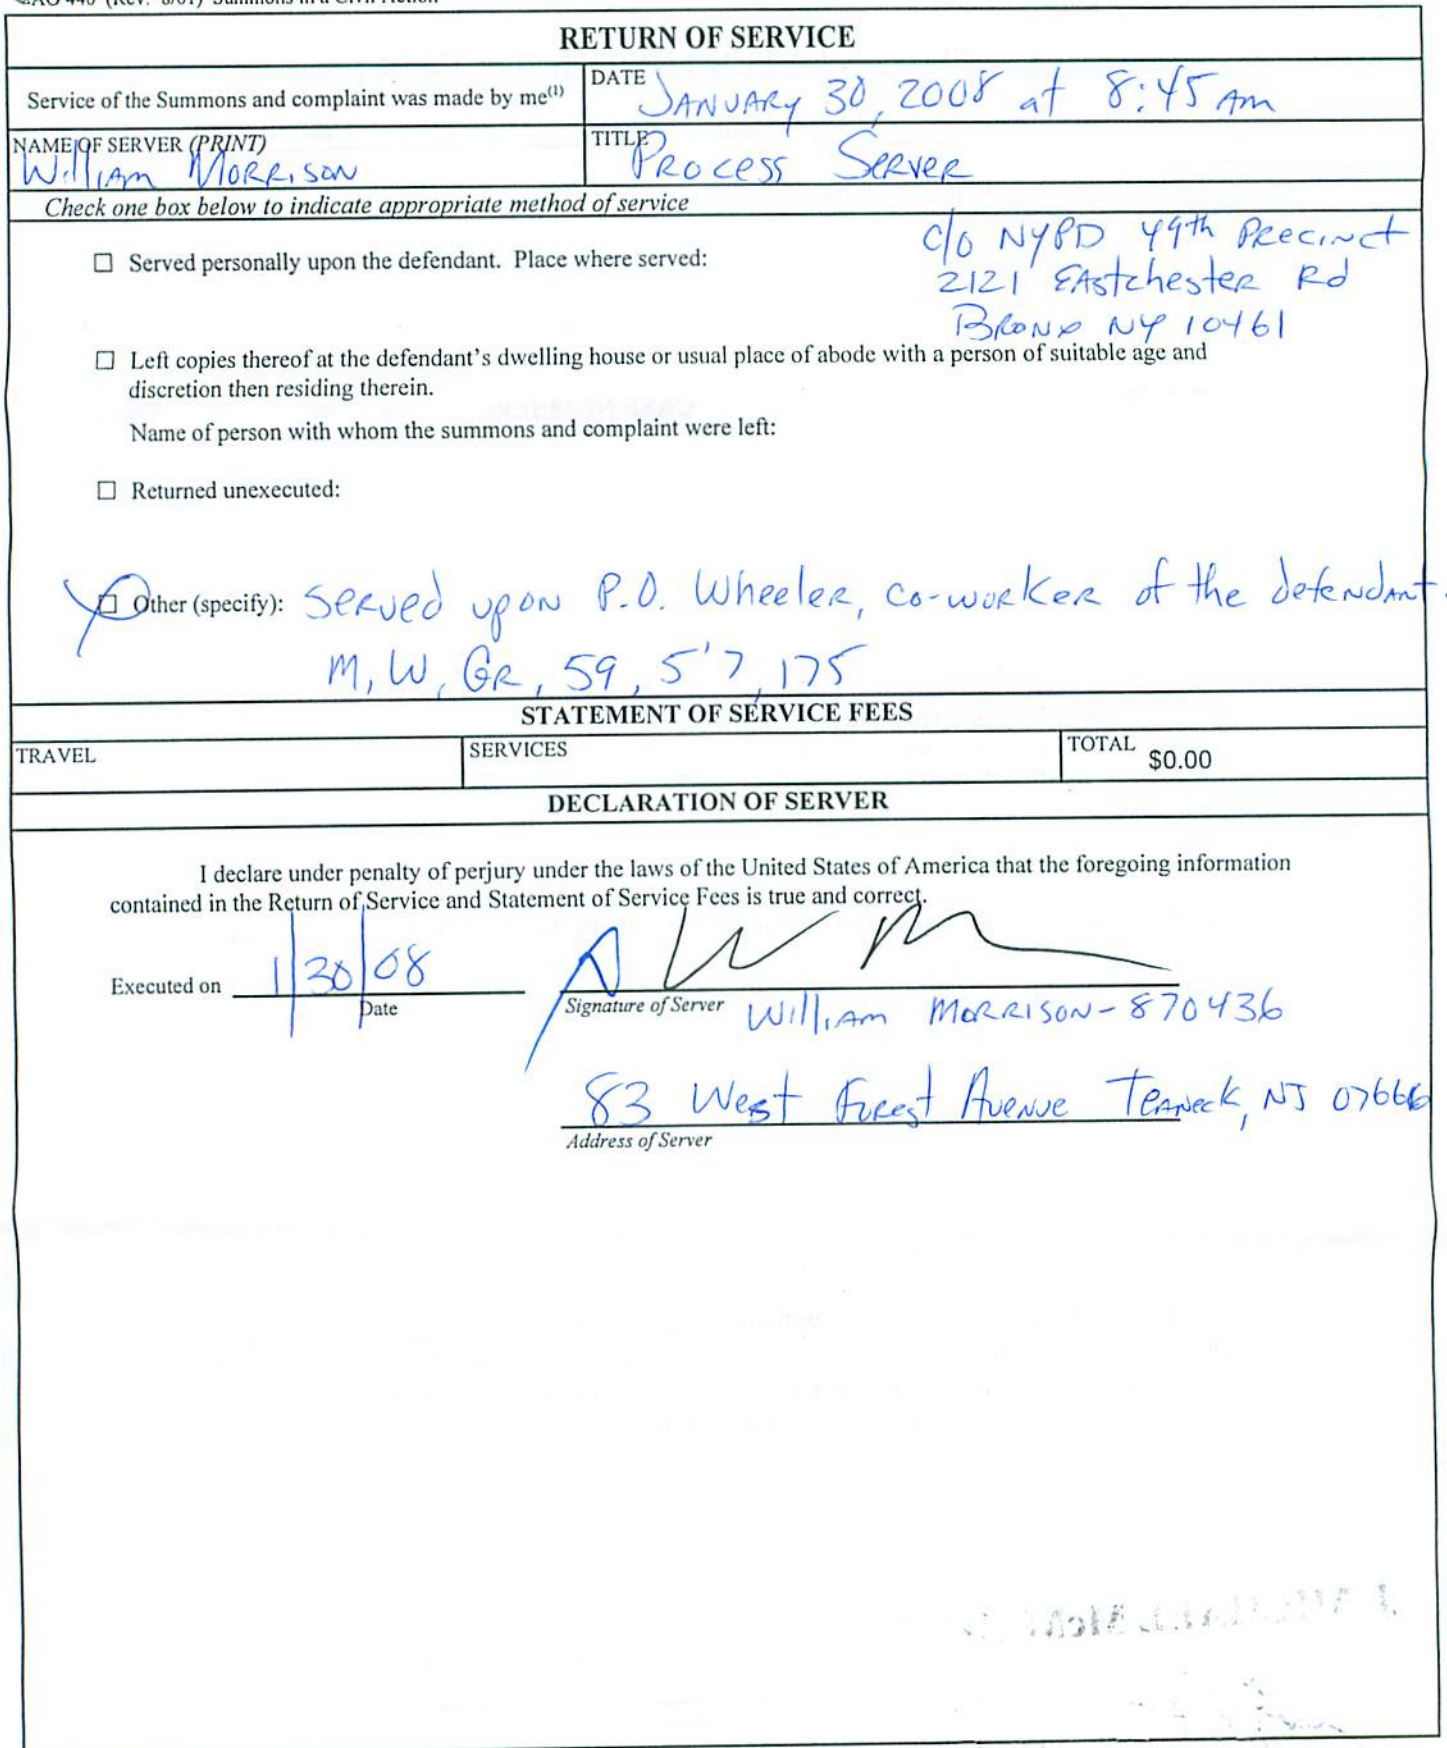 RETURN OF SERVICE
Service of the Summons and complaint was made by me(1)
DATE JANUARY 30, 2008 at 8:45 Am
NAME OF SERVER (PRINT)
William MORRISON
TITLE Process Server
Check one box below to indicate appropriate method of service
c/o NYPD 49th Precinct
☐ Served personally upon the defendant. Place where served:
2121 Eastchester Rd
Bronx NY 10461
☐ Left copies thereof at the defendant's dwelling house or usual place of abode with a person of suitable age and
discretion then residing therein.
Name of person with whom the summons and complaint were left:
☐ Returned unexecuted:
☐ Other (specify): Served upon P.O. Wheeler, co-worker of the defendant.
M, W, GR, 59, 5'7, 175
STATEMENT OF SERVICE FEES
TRAVEL
SERVICES
TOTAL $0.00
DECLARATION OF SERVER
I declare under penalty of perjury under the laws of the United States of America that the foregoing information
contained in the Return of Service and Statement of Service Fees is true and correct.
Executed on 1/30/08
Date
Signature of Server William MORRISON-870436
83 West Forest Avenue Teaneck, NJ 07666
Address of Server